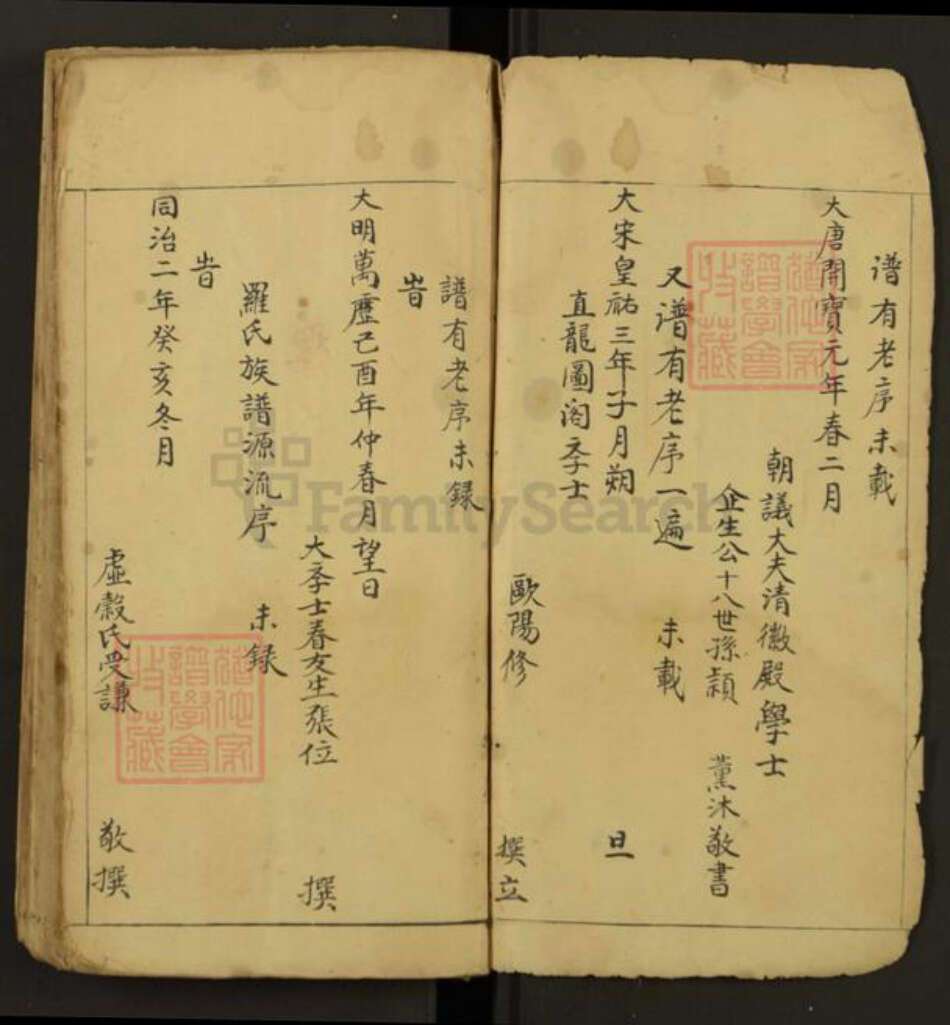 谱有老序未載
大唐開寳元年春二月
朝議大夫清徽殿學士
企生公十八世孫穎 薰沐敬書
又谱有老序一遍 未載
大宋皇祐三年子月朔 旦
直龍圖阁李士
歐陽修 撰立
譜有老序未録
旹
大明萬歷己酉年仲春月望日
大李士春友生張位 撰
羅氏族譜源流序 未録
旹
同治二年癸亥冬月
虛穀氏受謙 敬撰
FamilySearch